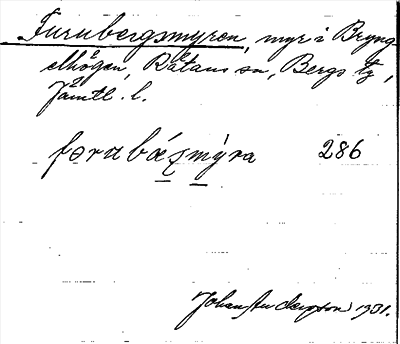 Furubergsmyren, myr i Bryng-
elhögen, Rätans sn, Bergs tg,
Jämtl. l.
286
Johan Anderson 1931.